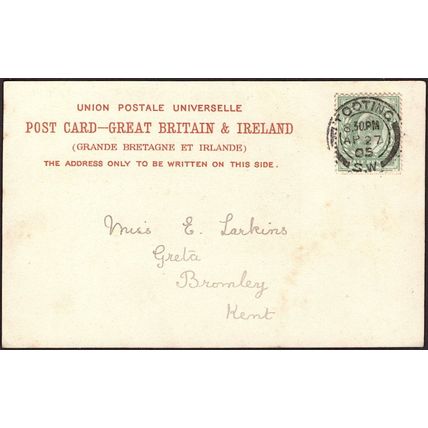 UNION POSTALE UNIVERSELLE
POST CARD—GREAT BRITAIN & IRELAND
(GRANDE BRETAGNE ET IRLANDE)
THE ADDRESS ONLY TO BE WRITTEN ON THIS SIDE.
TOOTING
6.30PM
AP 27
05
S.W.
Miss E. Larkins
Greta
Bromley
Kent